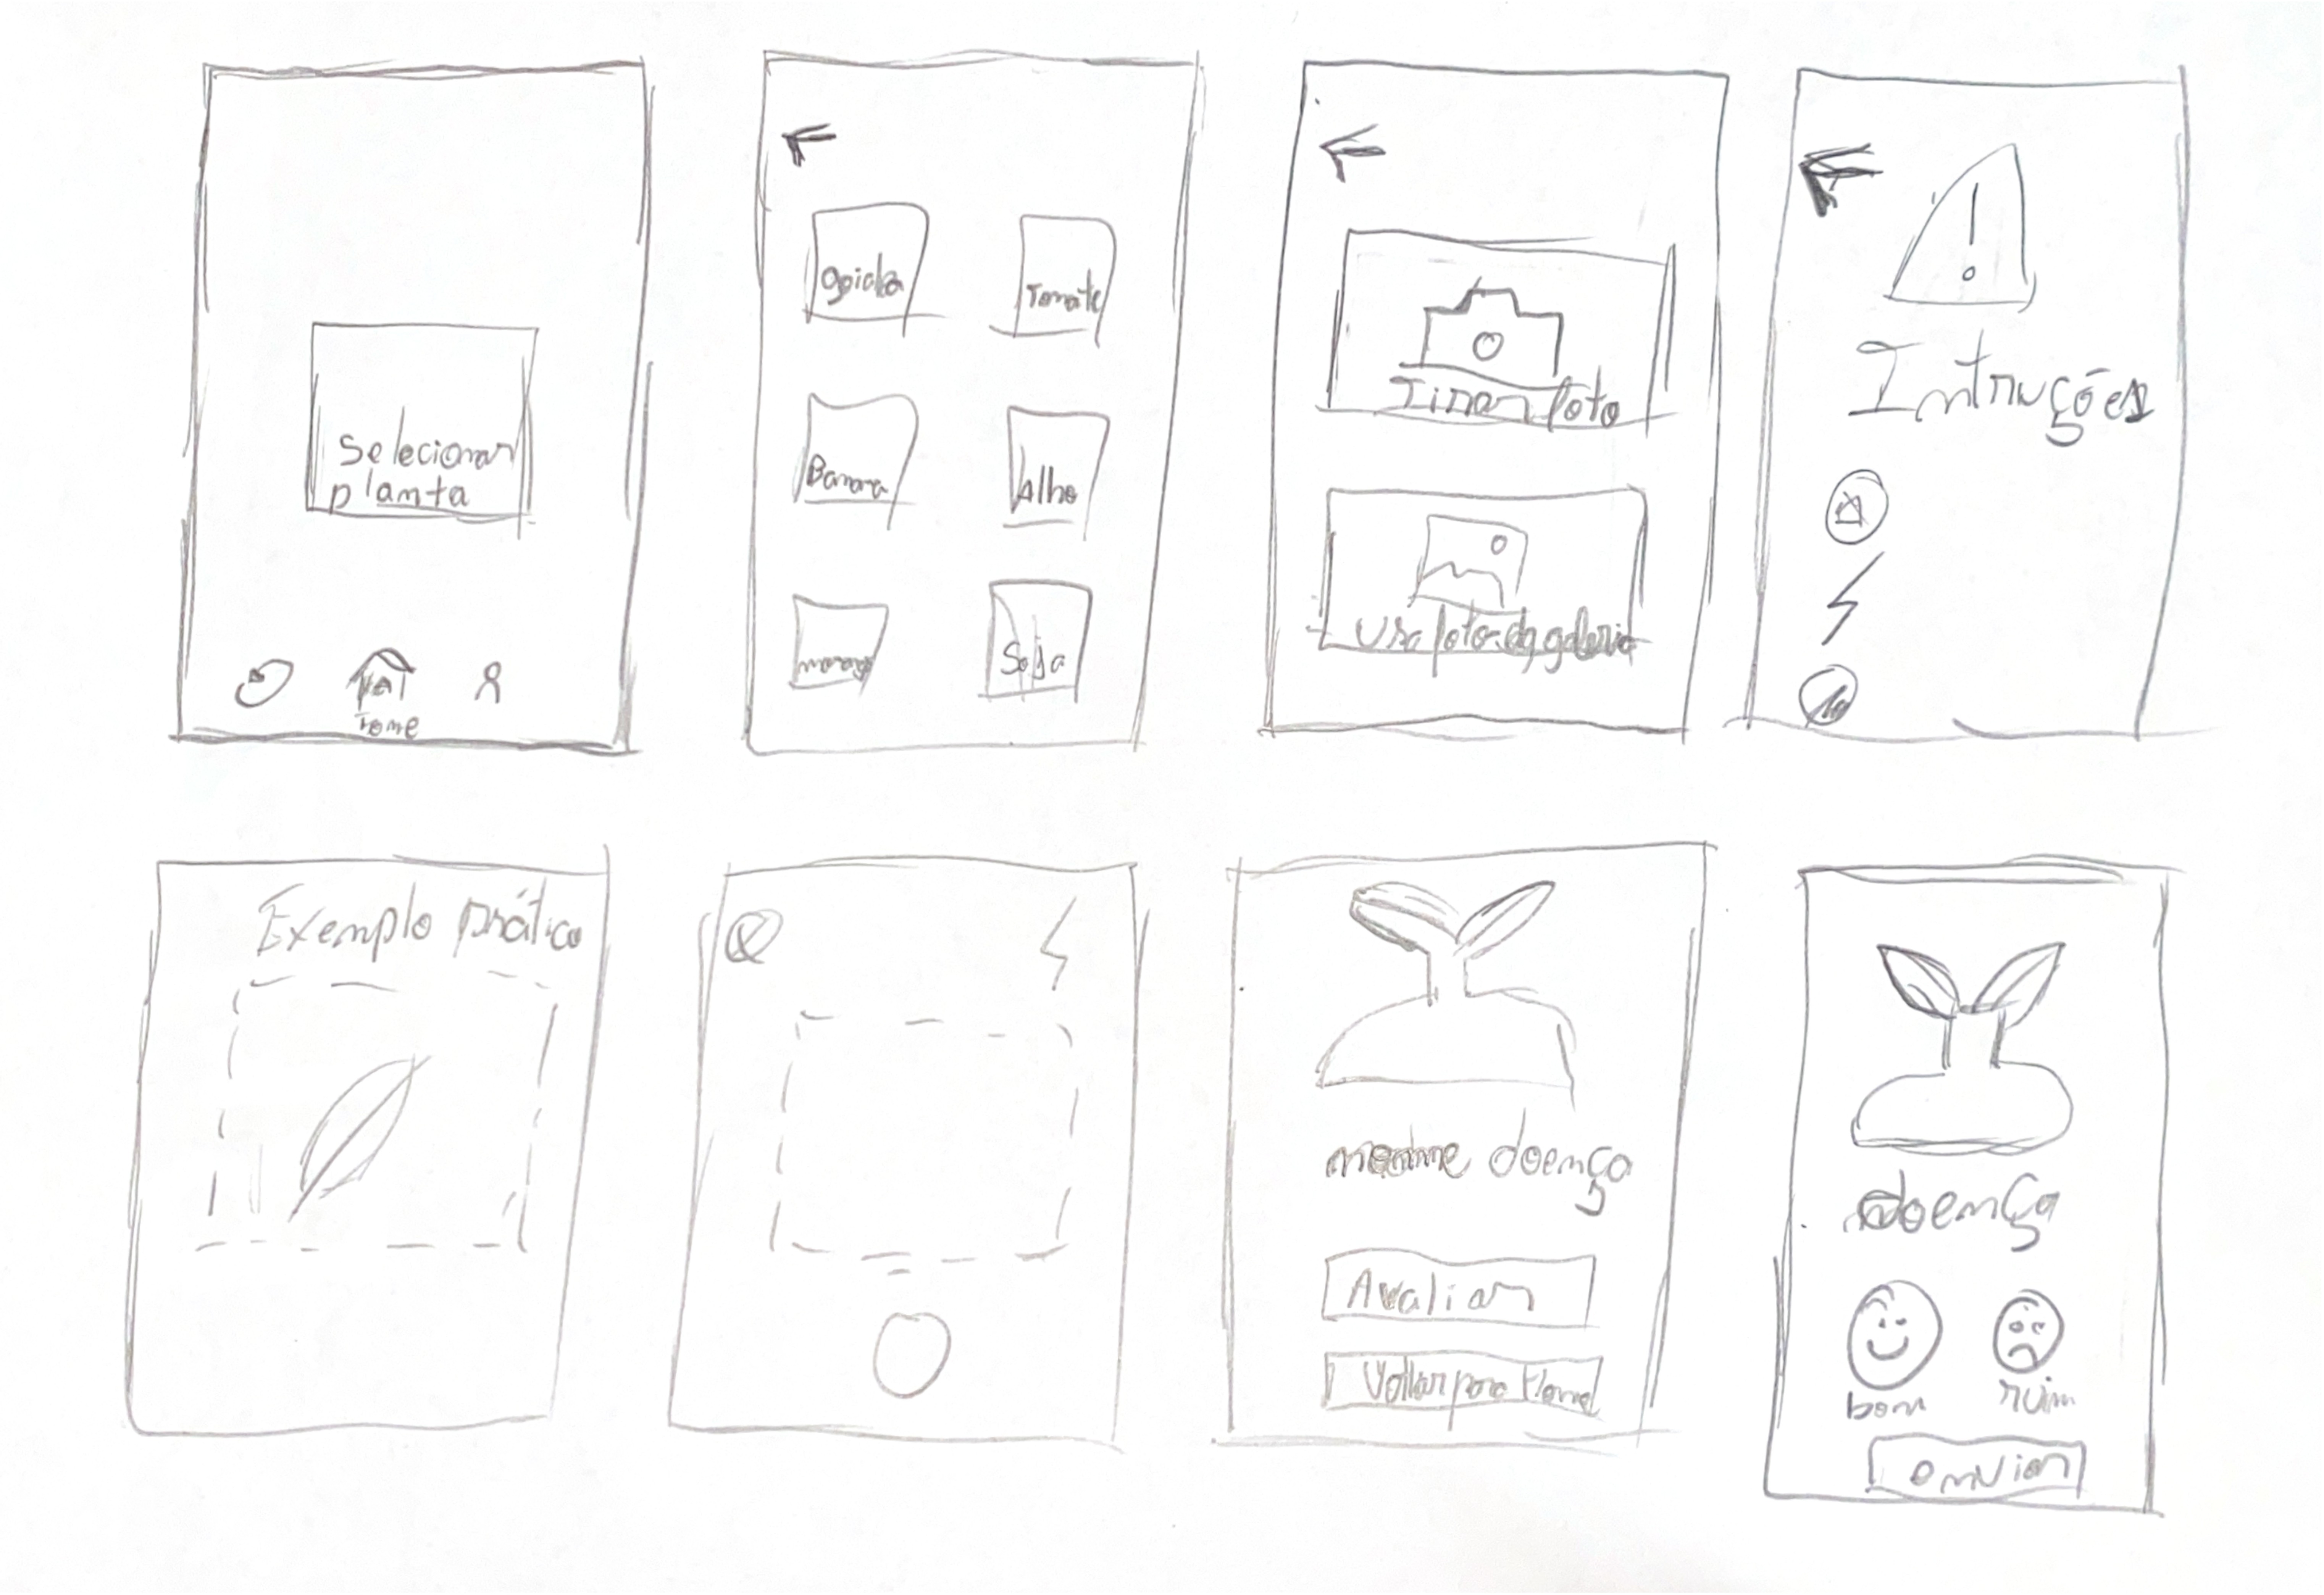 Selecionar
planta
Home
goiaba
Tomate
Banana
Alho
morango
Soja
Tirar foto
Usa foto da galeria
Intruções
Exemplo prático
nome doença
Avaliar
Voltar para Home
doença
bom
ruim
enviar